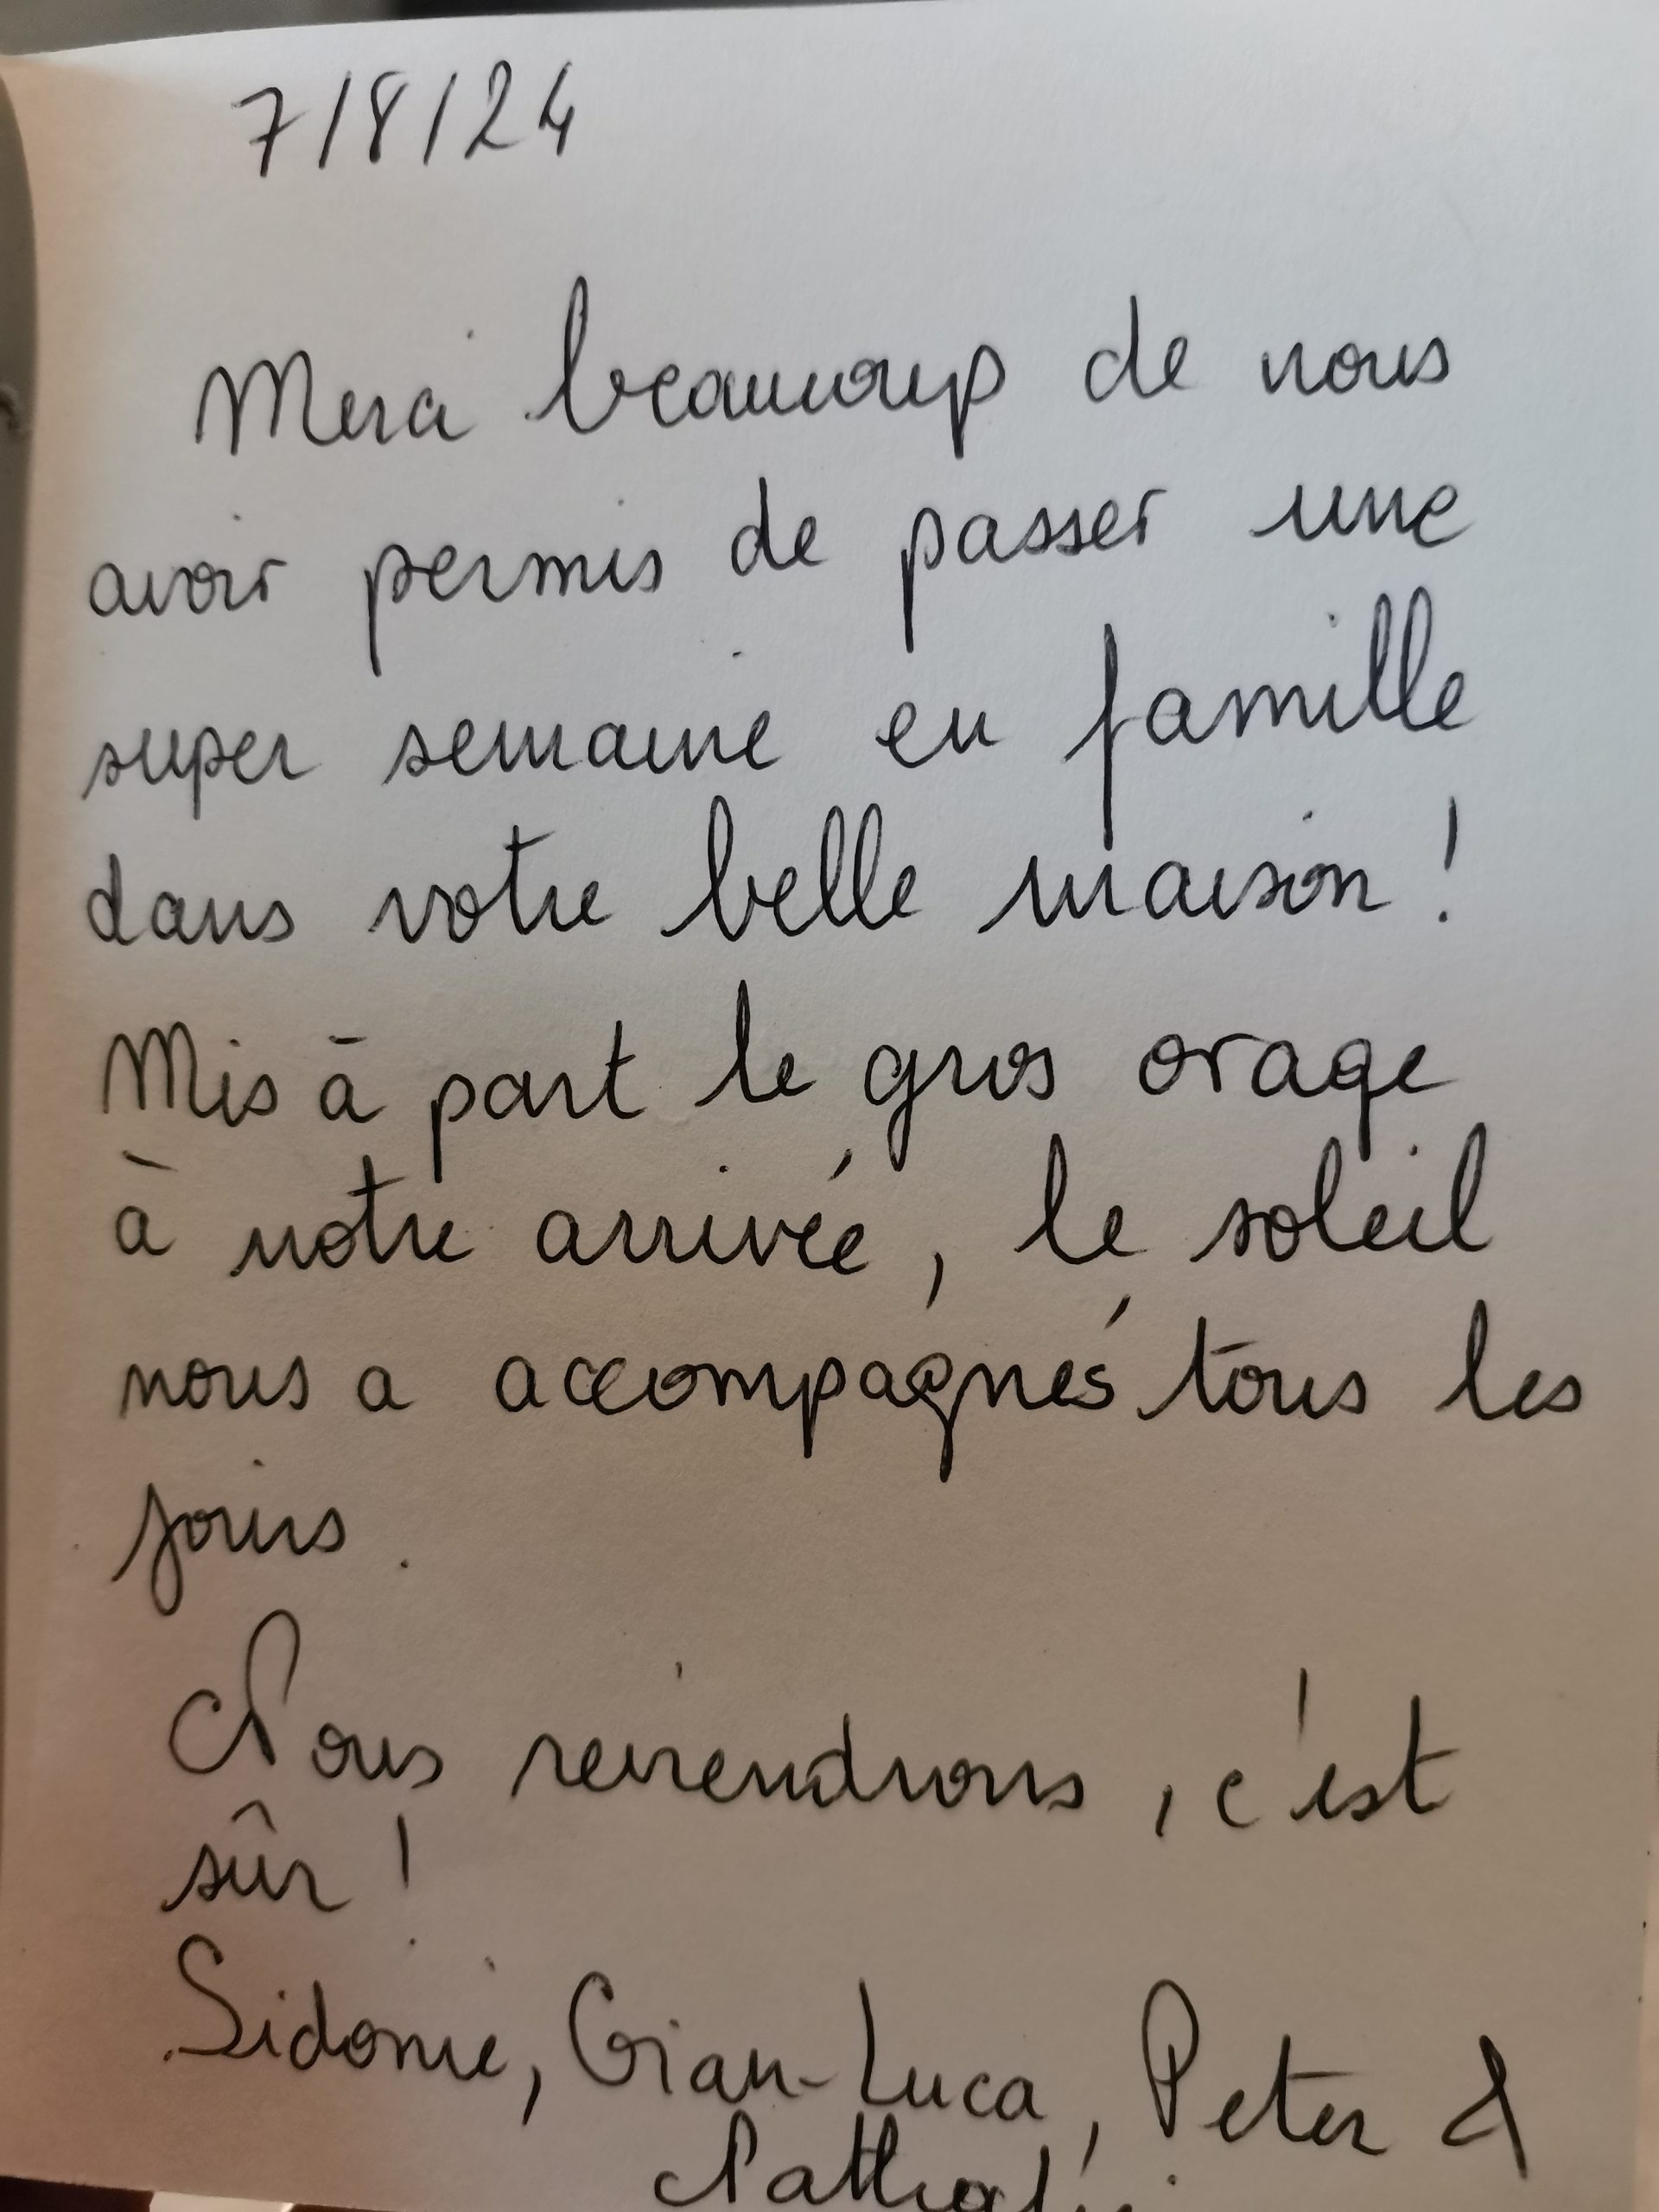 7/8/24
Merci beaucoup de nous
avoir permis de passer une
super semaine en famille
dans votre belle maison !
Mis à part le gros orage
à notre arrivée, le soleil
nous a accompagnés tous les
jours.
Nous reviendrons, c'est
sûr !
Sidonie, Gian-Luca, Peter &